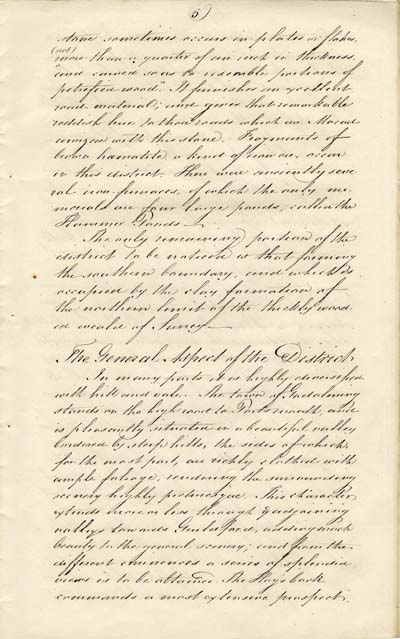 5)
stone sometimes occurs in plates or flakes,
(not)
more than a quarter of an inch in thickness,
"and curved so as to resemble portions of
petrified wood." It furnishes an excellent
road material; and gives that remarkable
reddish hue to those roads which are Macad
amized with this stone. Fragments of
brown hæmatite, a kind of iron ore, occur
in this district. There were anciently seve
ral iron furnaces, of which the only me-
morials are four large ponds, called the
Hammer Ponds.
The only remaining portion of the
district to be noticed is that forming
the southern boundary, and which is
occupied by the clay formation of
the northern limit of the thickly wood-
ed weald of Surrey.
The General Aspect of the District
In many parts it is highly diversified
with hill and vale. The town of Godalming
stands on the high road to Portsmouth, and
is pleasantly situated in a beautiful valley
bordered by steep hills, the sides of which,
for the most part, are richly clothed with
ample foliage, rendering the surrounding
scenery highly picturesque. This character
extends more or less through adjoining
valleys towards Guildford, adding much
beauty to the general scenery; and from the
different eminences a series of splendid
views is to be obtained. The Hog's back
commands a most extensive prospect;